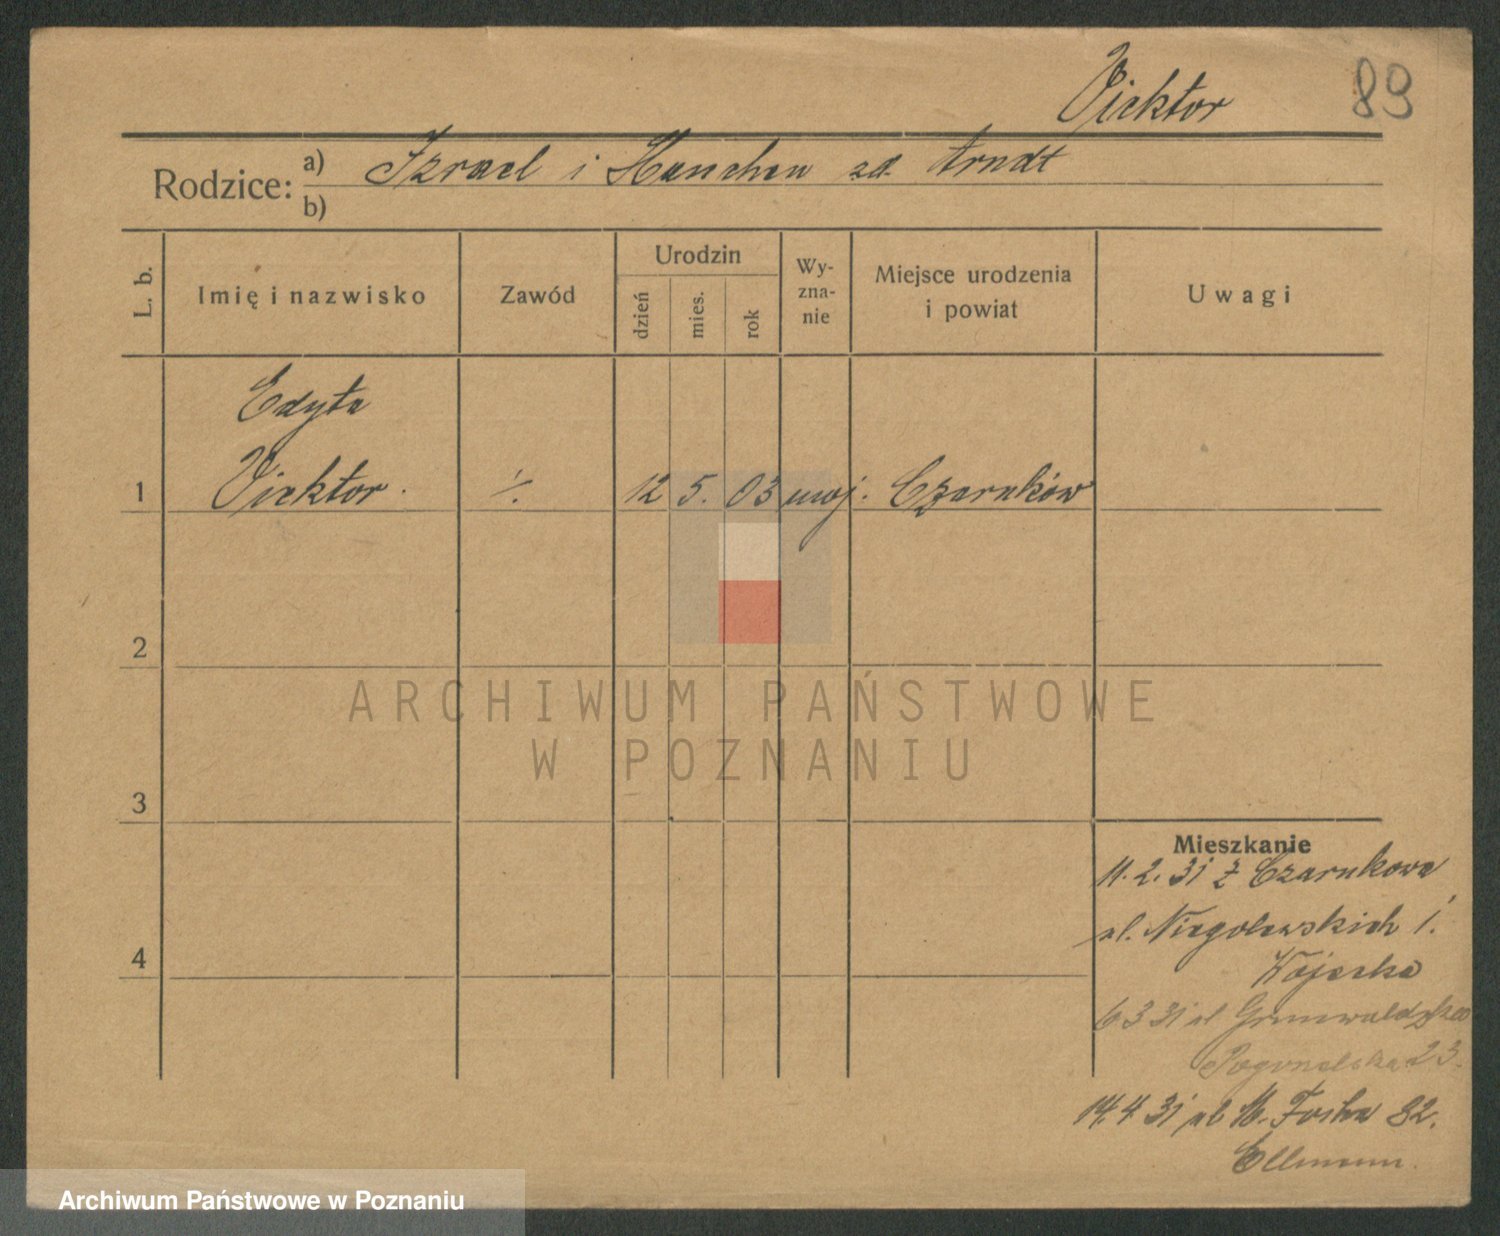 Vicktor 89
Rodzice: a) Izrael i Hanchen zd. Arndt
b)
L. b. Imię i nazwisko Zawód Urodzin dzień mies. rok Wy-zna-nie Miejsce urodzenia i powiat Uwagi
Edyta
1 Vicktor. ·/. 12 5. 03 mojż. Czarnków
2
ARCHIWUM PAŃSTWOWE
W POZNANIU
3
Mieszkanie
11.2.31 z Czarnkowa
ul. Niegolewskich 1.
4
6 3 31 ul Grunwaldzka
23.
14.4 31 ul M. Focha 82.
Ellmann.
Archiwum Państwowe w Poznaniu